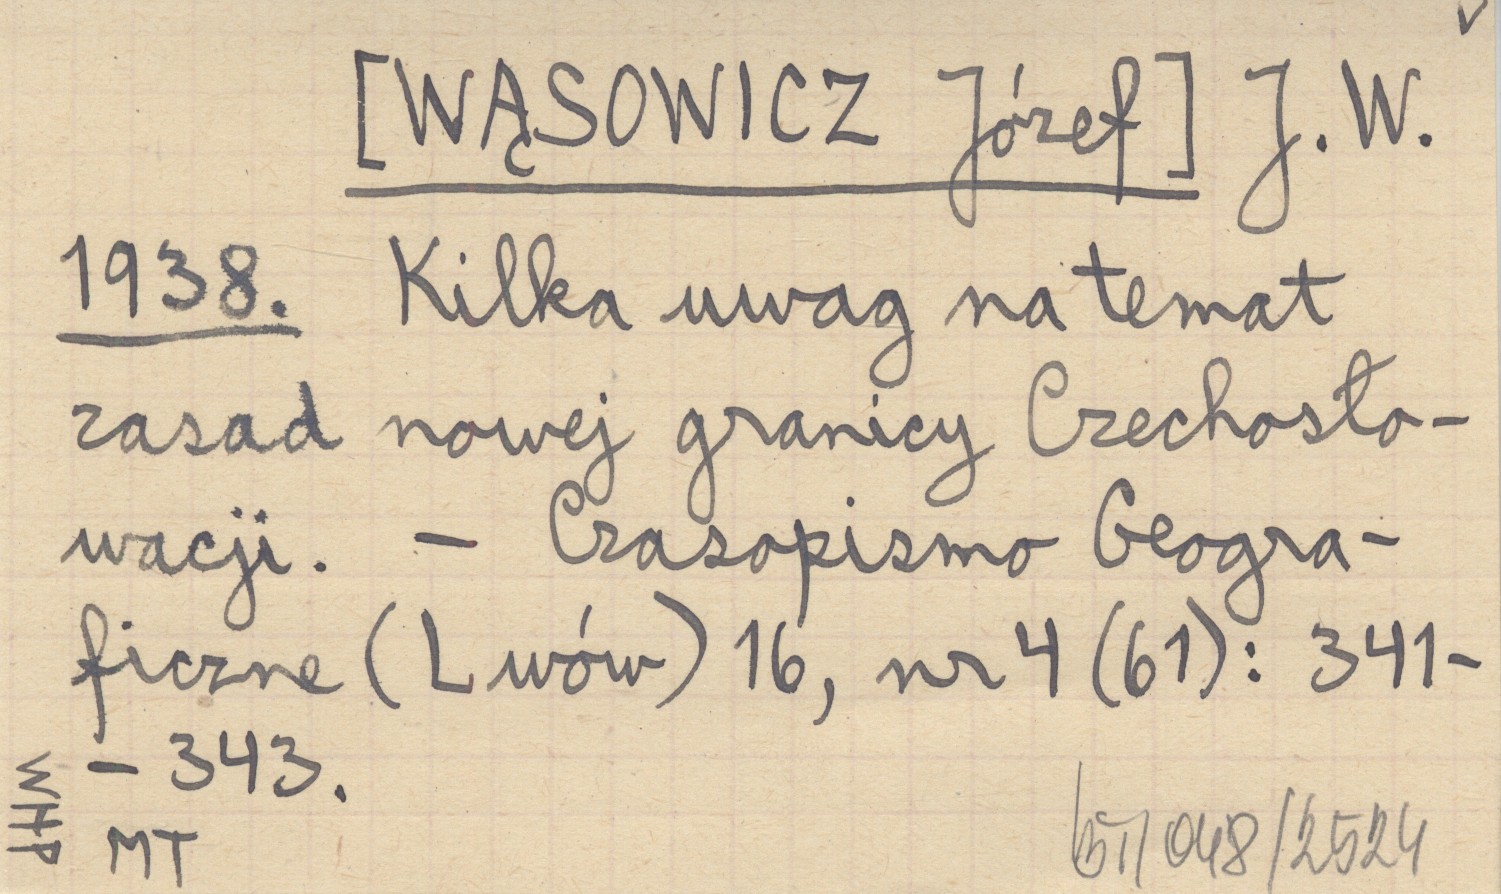 [WĄSOWICZ Józef] J. W.
1938. Kilka uwag na temat
zasad nowej granicy Czechosło-
wacji. – Czasopismo Geogra-
ficzne (Lwów) 16, nr 4 (61): 341-
- 343.
WHP
MT
/048/2524